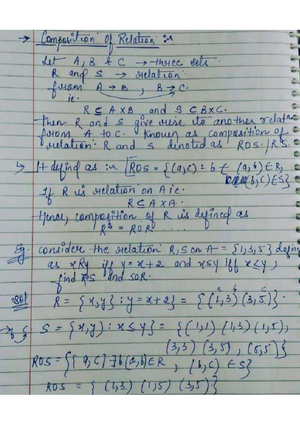 → Composition of Relation :-
Let A, B & C → three sets
R and S → relation
from A→B , B→C.
ie.
R ⊆ A×B and S ⊆ B×C.
Then R and S give rise to another relatn
from A to C. Known as composition of
relation R and S denoted as ROS / RS.
↳ It defind as :- ROS = {(a,c) : b ∈ (a,b) ∈ R, (b,c) ∈ S}
If R is relation on A ie.
R ⊆ A×A.
Hence, composition of R is defined as
R² = ROR
Eg consider the relation R, S on A = {1,3,5} defin
as xRy iff y = x+2 and xSy iff x ≤ y,
find ROS and SOR.
Sol R = {x,y} : y = x+2} = {(1,3) (3,5)}.
a b c
S = {x,y) : x ≤ y} = {(1,1) (1,3) (1,5),
(3,3) (3,5) , (5,5)}
ROS = {[a,c] ∃ b (a,b) ∈ R , (b,c) ∈ S}
ROS = { (1,3) (1,5) (3,5)}